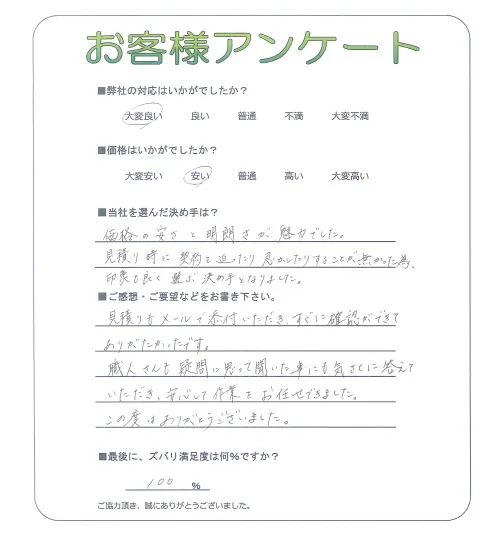 お客様アンケート
■弊社の対応はいかがでしたか？
大変良い 良い 普通 不満 大変不満
■価格はいかがでしたか？
大変安い 安い 普通 高い 大変高い
■当社を選んだ決め手は？
価格の安さと明朗さが魅力でした。
見積り時に契約を迫ったり急かしたりすることが無かった為、
印象も良く選ぶ決め手となりました。
■ご感想・ご要望などをお書き下さい。
見積りもメールで添付いただき、すぐに確認ができて
ありがたかったです。
職人さんも疑問に思って聞いた事にも気さくに答えて
いただき、安心して作業をお任せできました。
この度はありがとうございました。
■最後に、ズバリ満足度は何%ですか？
100 %
ご協力頂き、誠にありがとうございました。